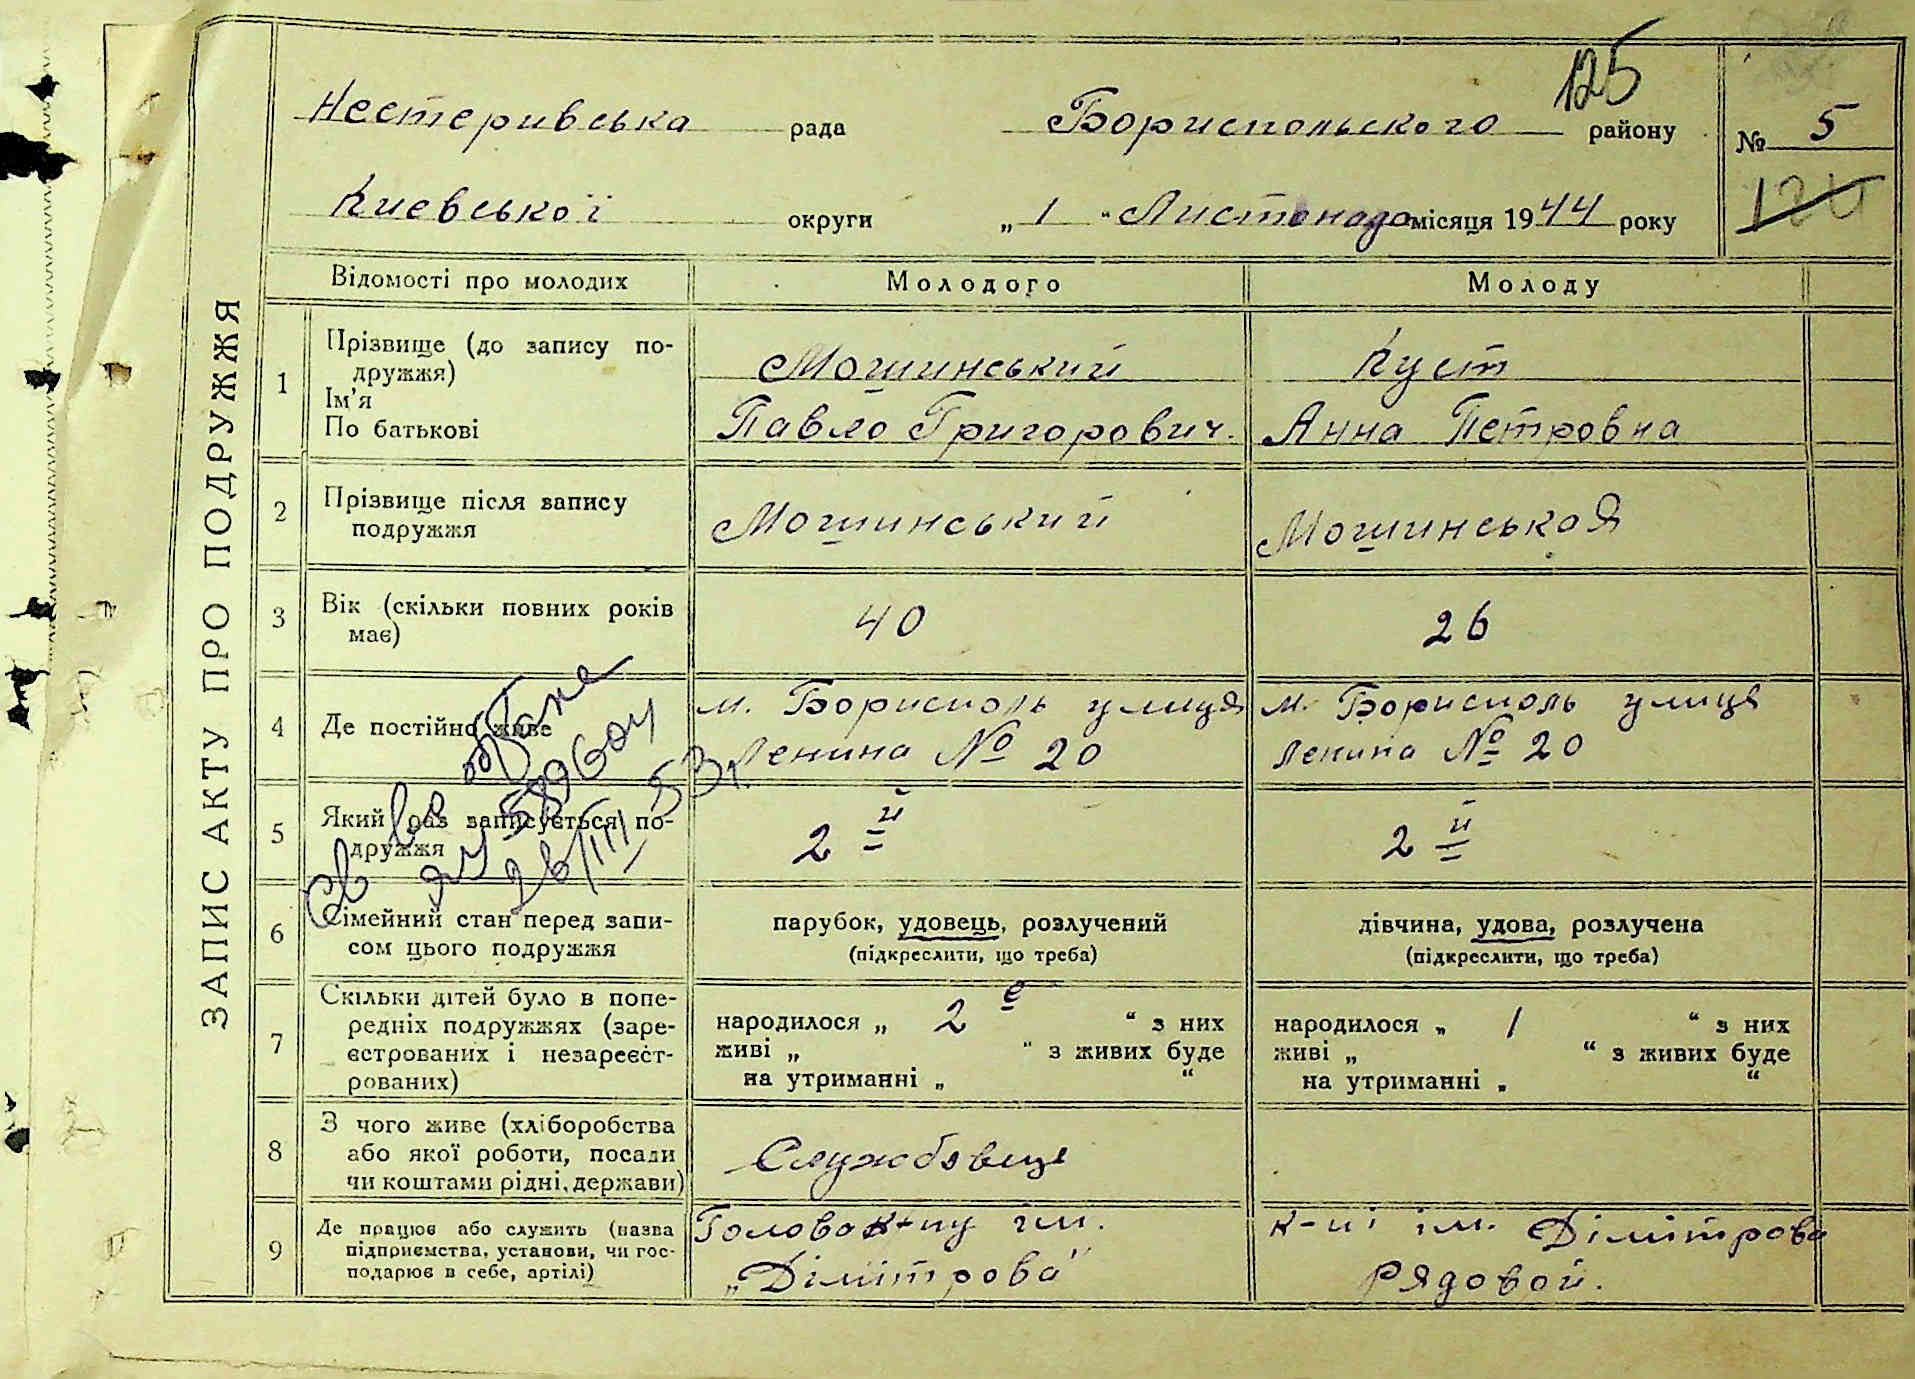 125
Нестеривська рада Бориспольского району № 5
124
Киевської округи „ 1 “ Листопада місяця 1944 року
ЗАПИС АКТУ ПРО ПОДРУЖЖЯ
Відомості про молодих Молодого Молоду
1 Прізвище (до запису по-
дружжя)
Ім'я
По батькові
Мошинський
Павло Григорович.
Куст
Анна Петровна
2 Прізвище після запису
подружжя
Мошинський
МошинськоЯ
3 Вік (скільки повних років
має)
40
26
4 Де постійно живе
м. Борисполь улиця
Ленина № 20
м. Борисполь улиця
Ленина № 20
5 Який раз записується по-
дружжя
2й
2й
Св во
26/III 53г.
6 Сімейний стан перед запи-
сом цього подружжя
парубок, удовець, розлучений
(підкреслити, що треба)
дівчина, удова, розлучена
(підкреслити, що треба)
7 Скільки дітей було в попе-
редніх подружжях (заре-
єстрованих і незареєст-
рованих)
народилося „ 2е “ з них
живі „ “ з живих буде
на утриманні „ “
народилося „ 1 “ з них
живі „ “ з живих буде
на утриманні „ “
8 З чого живе (хліборобства
або якої роботи, посади
чи коштами рідні, держави)
Службовеце
9 Де працює або служить (назва
підприємства, установи, чи гос-
подарює в себе, артілі)
Голова к-пу ім.
„Дімітрова“
к-пі ім. Дімітрова
Рядовой.